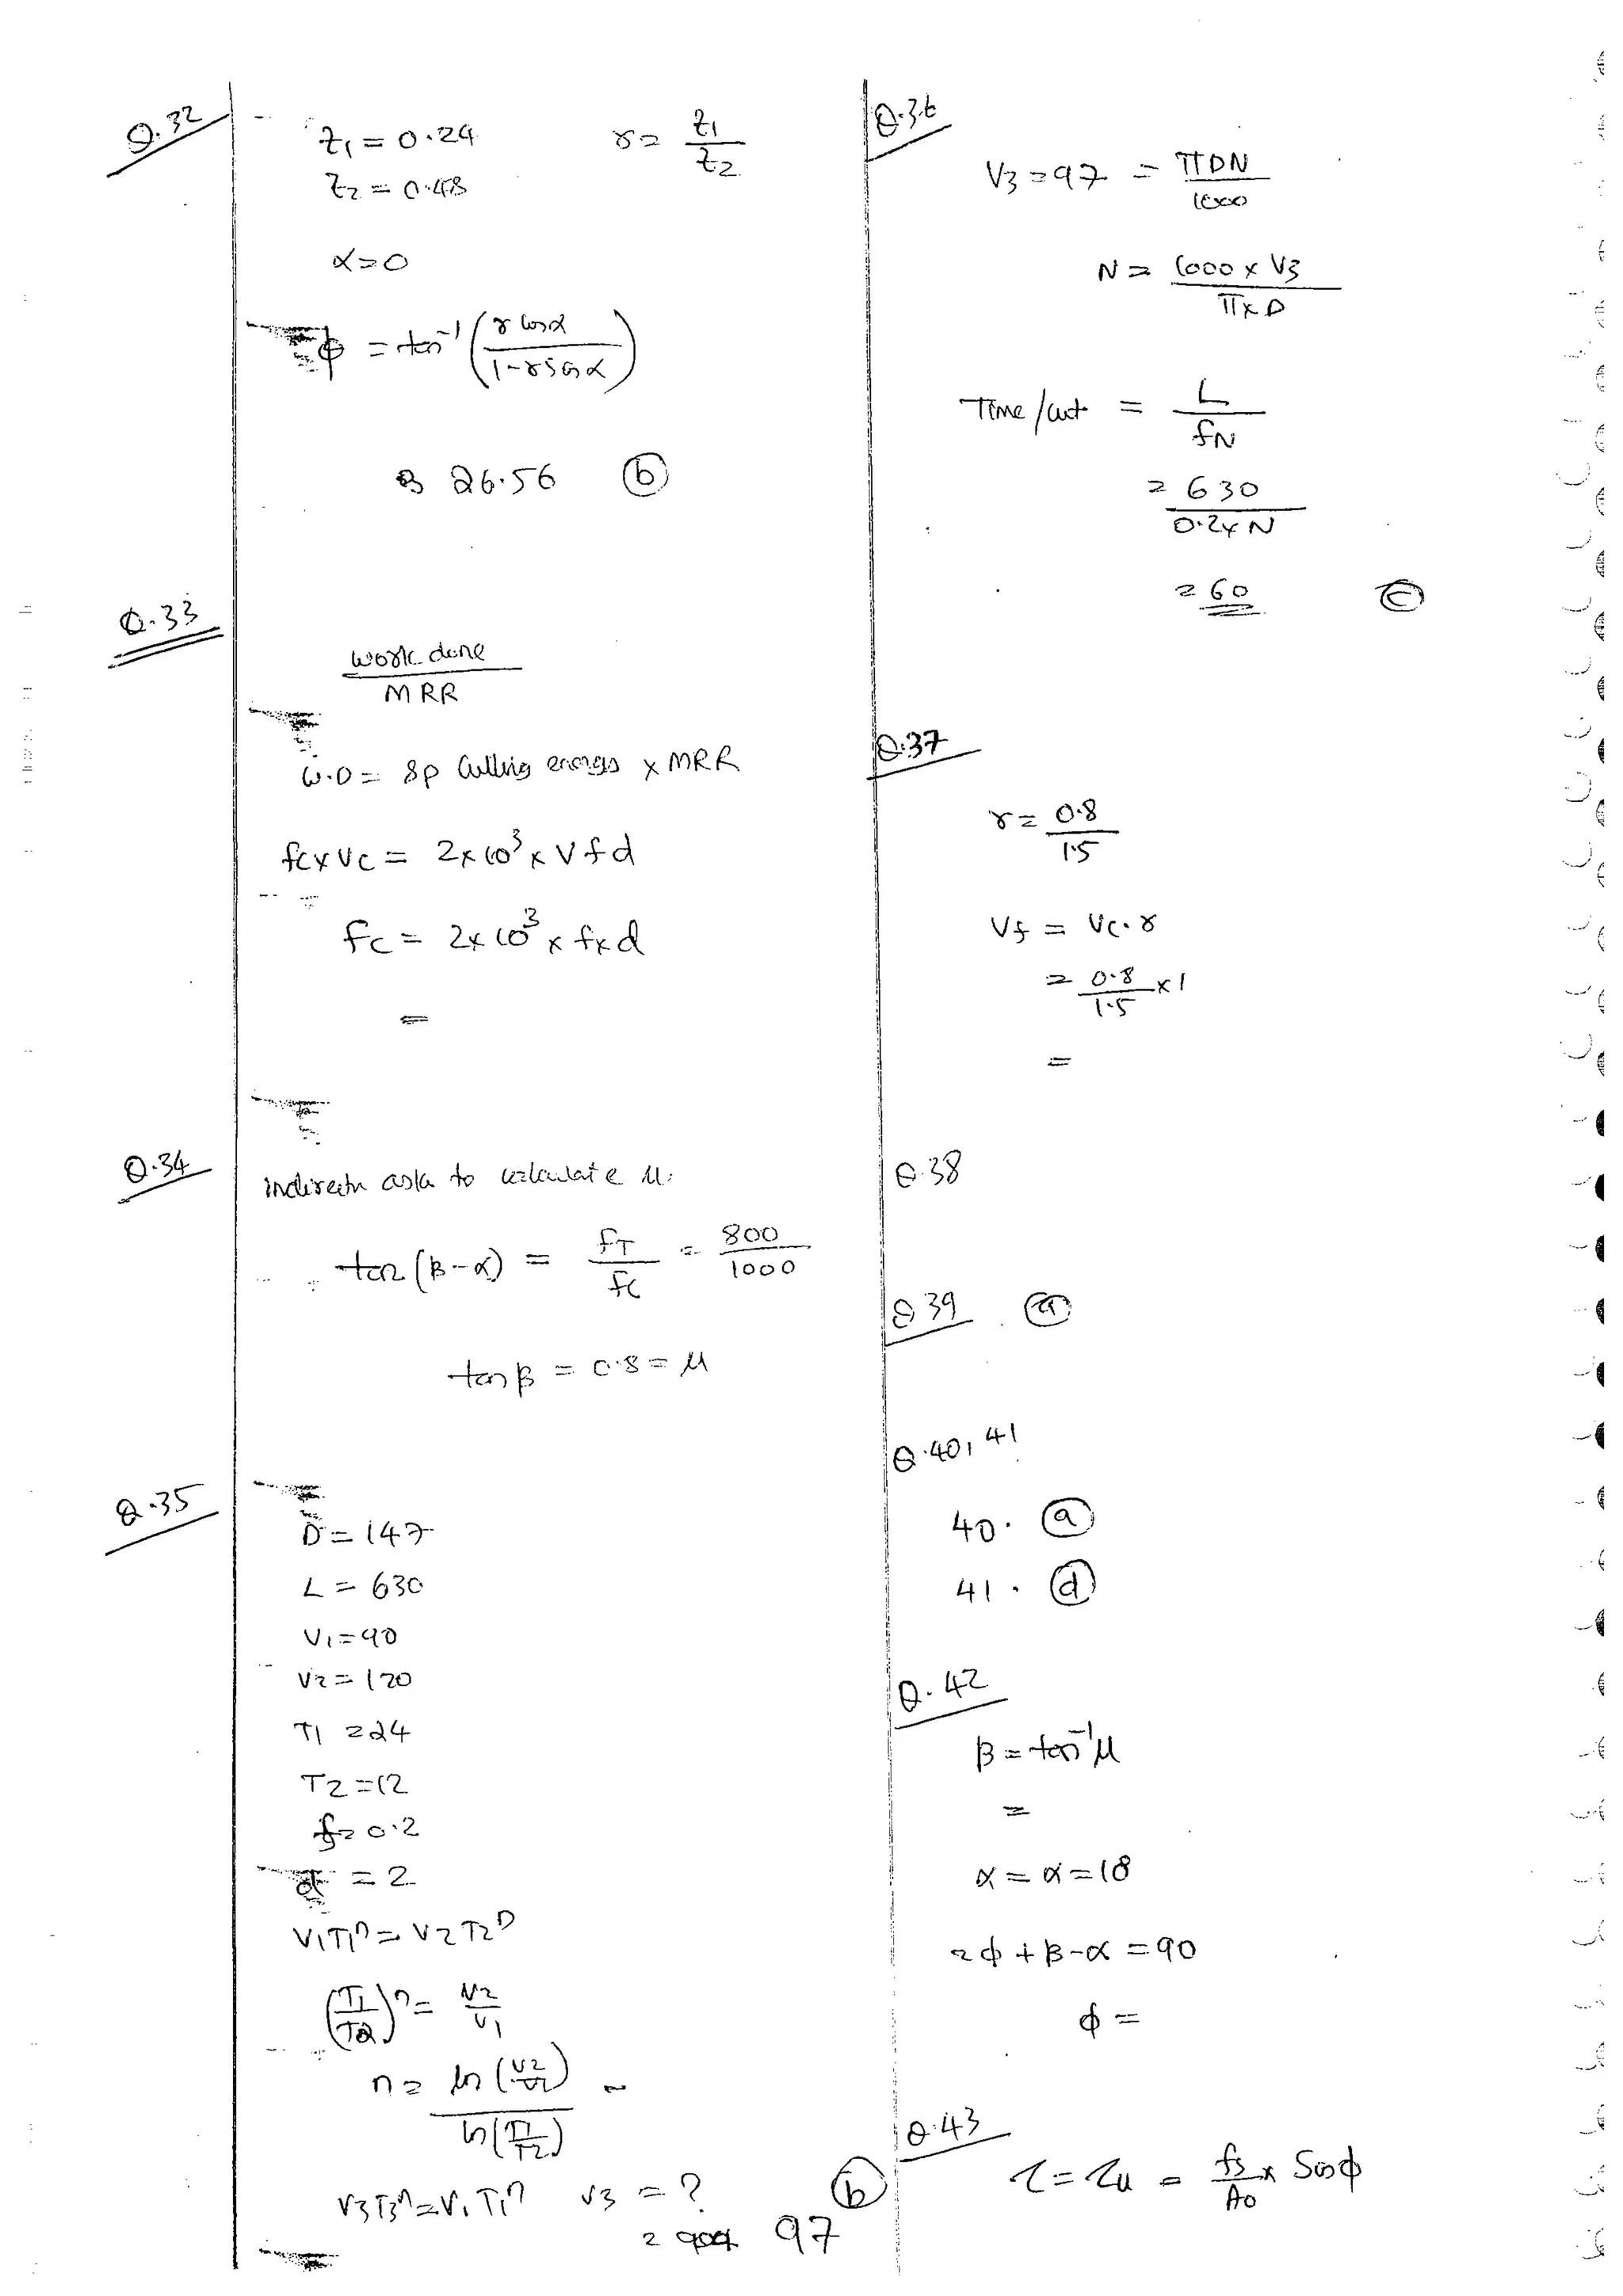 Q.32
t1 = 0.24
r = t1/t2
t2 = 0.48
α = 0
ϕ = tan⁻¹ (r cosα / 1-r sinα)
26.56 (b)
Q.33
work done / MRR
W.D = sp cutting energy x MRR
fc x Vc = 2 x 10³ x V f d
fc = 2 x 10³ x f x d
=
Q.34
tan (β-α) = fT / fc = 800 / 1000
tan β = 0.8 = μ
Q.35
D = 147
L = 630
V1 = 90
V2 = 120
T1 = 24
T2 = 12
f = 0.2
d = 2
V1T1ⁿ = V2T2ⁿ
(T1/T2)ⁿ = V2/V1
n = ln (V2/V1) / ln (T1/T2) =
V3T3ⁿ = V1T1ⁿ V3 = ?
(b)
= 97
Q.36
V3 = 97 = πDN / 1000
N = 1000 x V3 / π x D
Time/cut = L / fN
= 630 / 0.2 x N
= 60 (c)
Q.37
r = 0.8 / 1.5
Vf = Vc.r
= 0.8 / 1.5 x 1
=
Q.38
Q.39 (a)
Q.40, 41
40. (a)
41. (d)
Q.42
β = tan⁻¹ μ
=
α = α = 18
2ϕ + β - α = 90
ϕ =
Q.43
τ = τu = fs / A0 x sinϕ